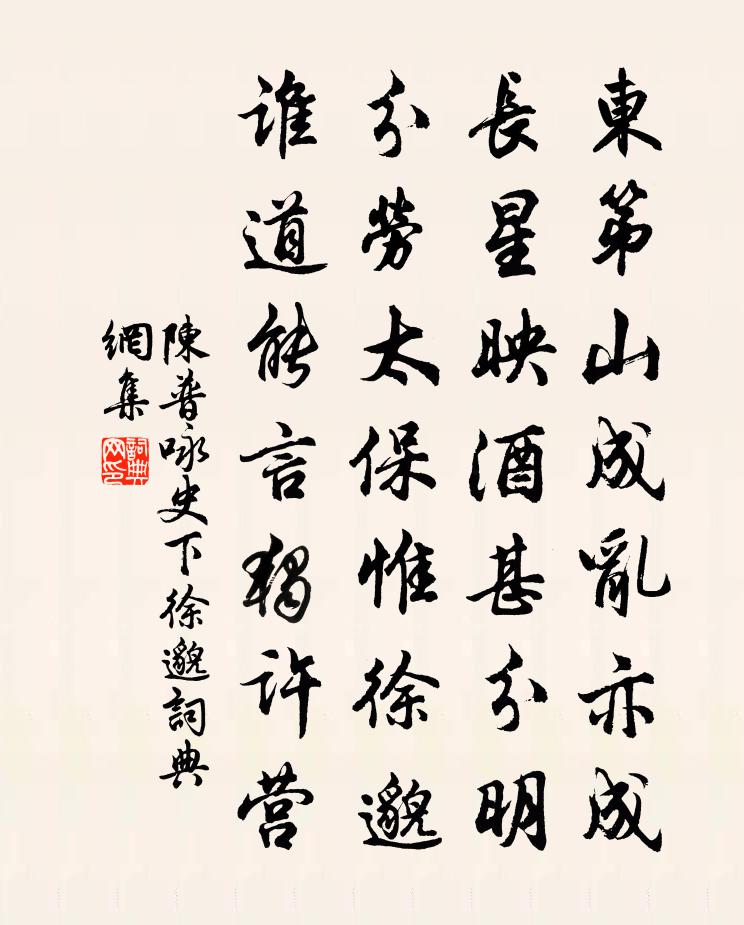 東第山成亂亦成
長星映酒甚分明
分勞太保惟徐邈
谁道能言獨許营
陳普咏史下徐邈詞典
網集
詞典網印